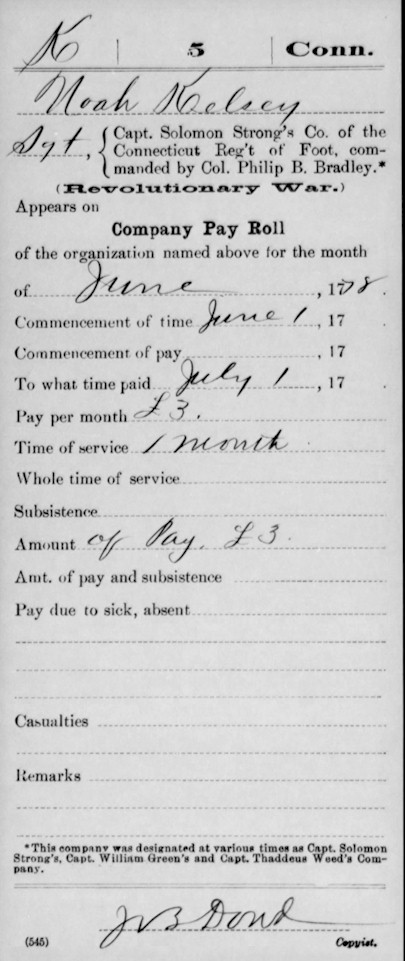 K | 5 | Conn.
Noah Kelsey
Sgt, { Capt. Solomon Strong's Co. of the
Connecticut Reg't of Foot, com-
manded by Col. Philip B. Bradley.*
(Revolutionary War.)
Appears on
Company Pay Roll
of the organization named above for the month
of June, 1778.
Commencement of time June 1, 17 .
Commencement of pay, 17
To what time paid July 1, 17 .
Pay per month £3.
Time of service 1 month.
Whole time of service
Subsistence
Amount of Pay. £3.
Amt. of pay and subsistence
Pay due to sick, absent
Casualties
Remarks
*This company was designated at various times as Capt. Solomon
Strong's, Capt. William Green's and Capt. Thaddeus Weed's Com-
pany.
(545) Copyist.